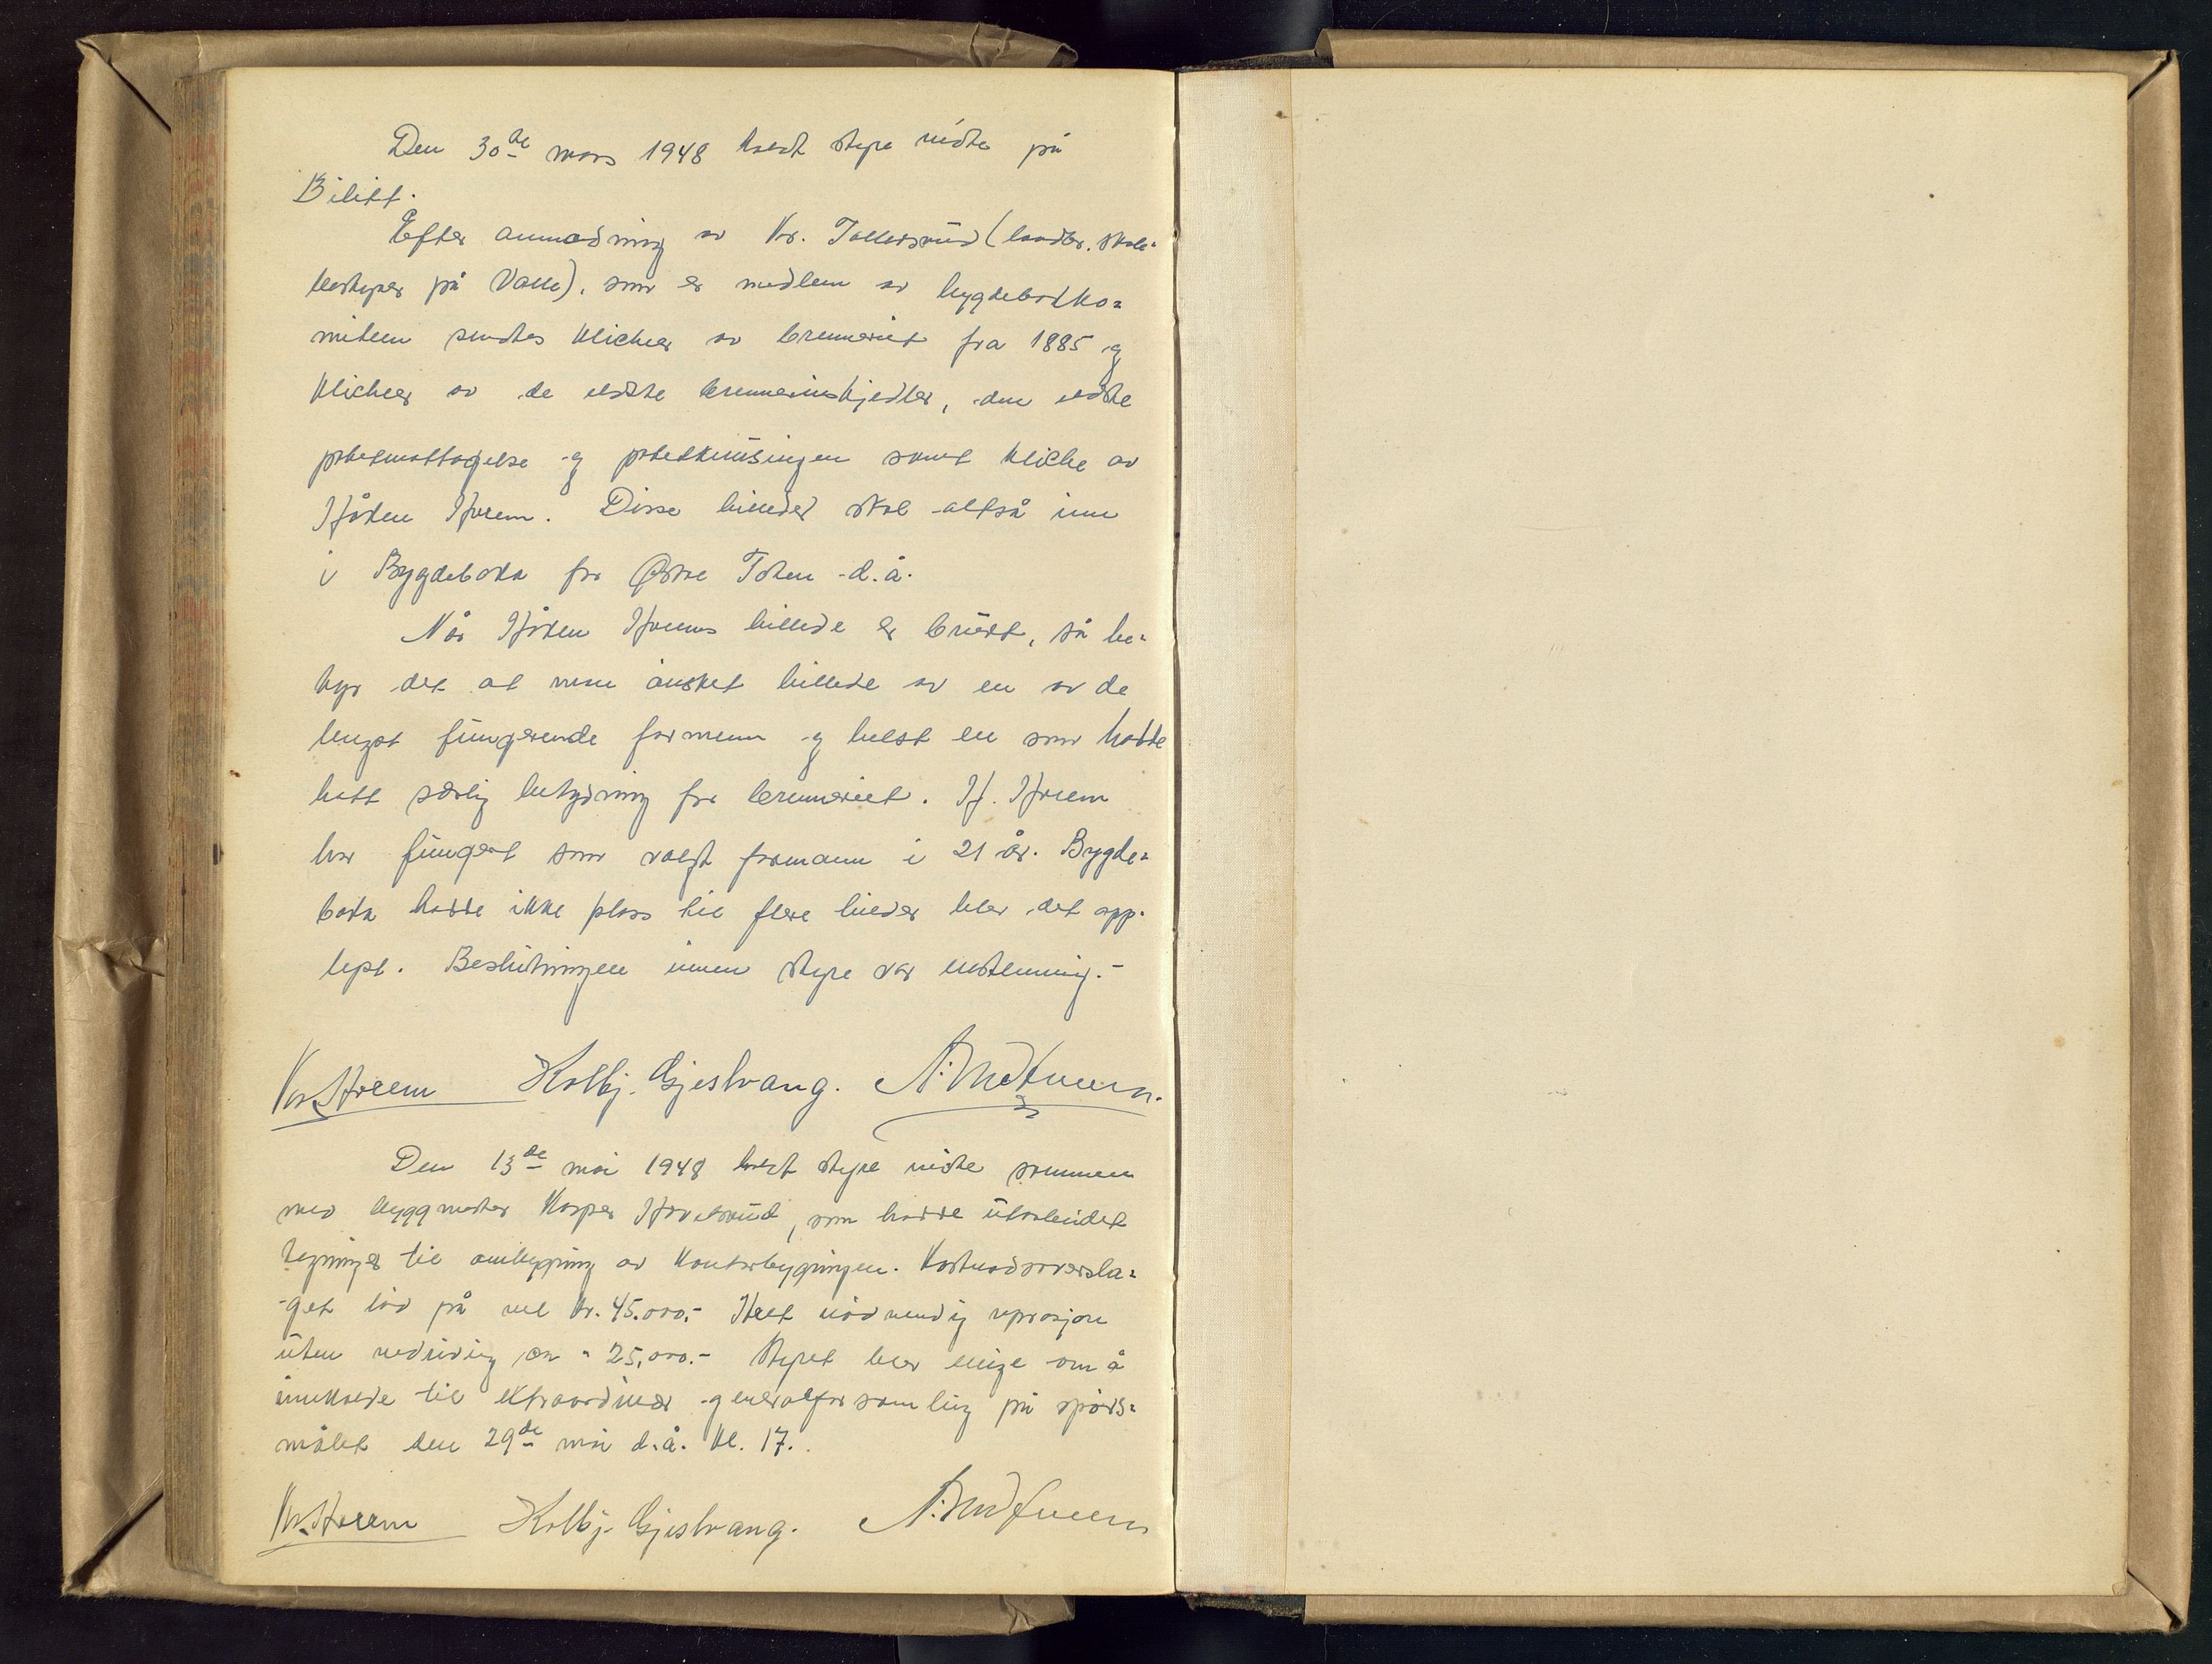 Den 30de mars 1948 holdt styre møte på
Bilitt.
Efter anmodning av Kr. Tollersrud (landbr. skole-
bestyrer på Valle), som er medlem av bygdebokko-
miteen sendtes klicheer av brenneriet fra 1885 og
klicheer av de eldste brennerikjedler, den eldste
potetmottagelse og samt kliche av
Håken Hveem. Disse billeder skal altså inn
i Bygdeboka for Østre Toten d.å.
Når Håken Hveems billede er brukt, så be-
tyr det at man ønsket billede av en av de
lengst fungerende formenn og helst en som hadde
hatt særlig betydning for brenneriet. H. Hveem
har fungert som valgt formann i 21 år. Bygde-
boka hadde ikke plass til flere bileder blev det opp-
lyst. Beslutningen innen styre var enstemmig.-
Kr. Hveem Kolbj. Gjestvang.
Den 13de mai 1948 holdt styre møte sammen
med byggmester Kasper Hovelsrud, som hadde utarbeidet
tegninger til ombygging av kontorbygningen. Kostnadsoversla-
get lød på vel kr. 45.000.- Helt nødvendig reprasjon
uten ca " 25,000.- Styret blev enige om å
innkalde til ekstraordinær generalforsamling på spørs-
målet den 29de mai d.å. kl. 17.
Kr. Hveem Kolbj. Gjestvang.